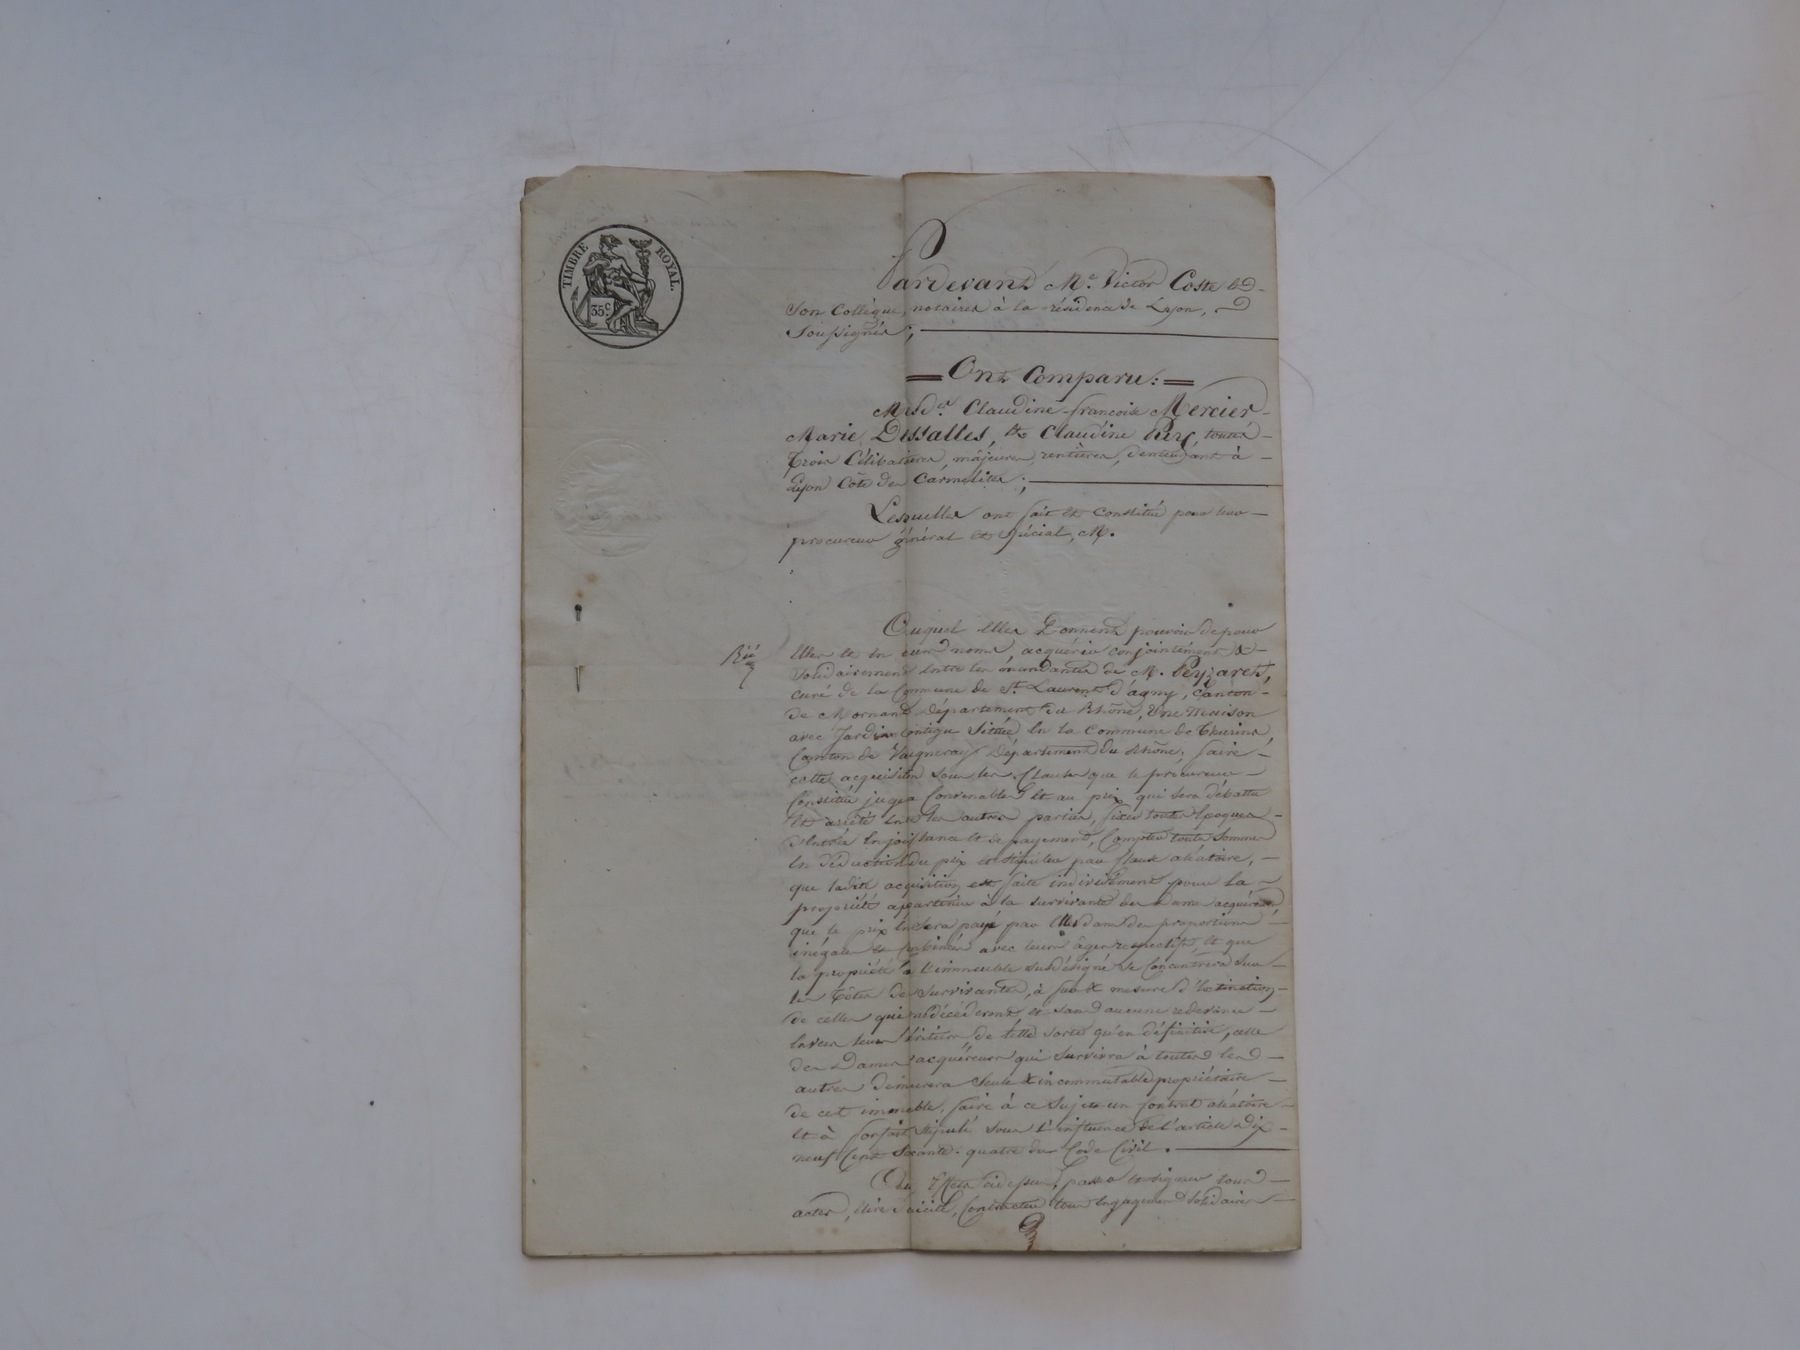 TIMBRE ROYAL.
35c
Pardevant Me. Victor Coste et
Son Collègue, notaires à la résidence de Lyon,
Soussignés ;
Ont Comparu :
Mesd.es Claudine-françoise Mercier
Marie Dessalles, et Claudine Rey, toutes
Trois Célibataires, majeures, rentières, demeurant à
Lyon Côte des Carmélites ;
Lesquelles ont fait et Constitué pour leur
procureur général et Spécial, M.
Auquel Elles Donnent pouvoir de pour
Elles et en leurs noms acquérir conjointement &
Solidairement entre les mandantes de M. Peyzaret,
curé de la Commune de St. Laurent d'agny, Canton
de Mornant Département du Rhône, Une Maison
avec Jardin Contigu Située en la Commune de Thurins,
Canton de Vaugneray Département du Rhône, faire
cette acquisition sous les Clauses que le procureur
Constitué jugera Convenables et au prix qui sera débattu
et arrêté entre les autres parties, fixer toutes Epoques
d'Entrée en jouissance et de payement, Compter toute Somme
en déduction du prix et stipuler par Clause aléatoire,
que ladite acquisition est faite indivisément pour la
propriété appartenir à la survivante des Dames acquéreurs
que le prix en sera payé par Elles dans des proportions
inégales & Combinées avec leurs âges respectifs, et que
la propriété de l'immeuble susdésigné se Concentrera sur
les Têtes des Survivantes, à fur & mesure d'Extinction
de celles qui décéderont et sans aucune redevance
Envers leurs héritiers de telle sorte qu'en définitive, celle
des Dames acquéreurs qui Survivra à toutes les
autres demeurera Seule & incommutable propriétaire
de cet immeuble, faire à ce Sujet un Contrat aléatoire
et à forfait Stipulé Sous l'influence de l'article Dix
neuf Cent Soixante-quatre du Code Civil.
Aux Effets cidessus, passer et signer tous
actes, élire domicile, Contracter tous Engagements Solidaires